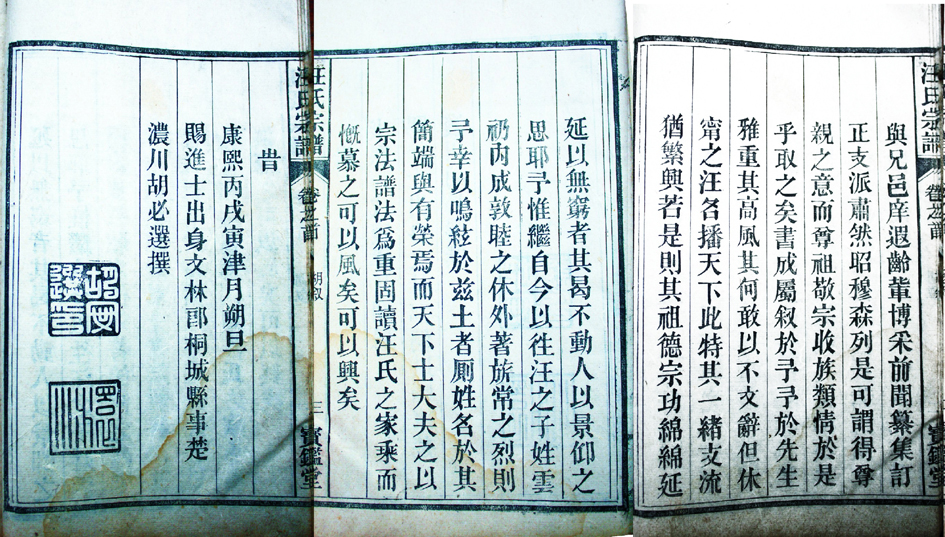 與兄邑庠遐齡輩博采前聞纂集訂
正支派肅然昭穆森列是可謂得尊
親之意而尊祖敬宗收族類情於是
乎取之矣書成屬叙於予予於先生
雅重其高風其何敢以不文辭但休
甯之汪各播天下此特其一緒支流
猶繁興若是則其祖德宗功綿綿延
汪氏宗譜
卷之首
寶鑑堂
延以無窮者其曷不動人以景仰之
思耶予惟繼自今以徃汪之子姓雲
礽內成敦睦之休外著旂常之烈則
予幸以鳴絃於兹土者厕姓名於其
簡端與有榮焉而天下士大夫之以
宗法譜法爲重固讀汪氏之家乘而
慨慕之可以風矣可以興矣
汪氏宗譜
卷之首
胡叙
三
寶鑑堂
旹
康熙丙戌寅津月朔旦
賜進士出身文林郎桐城縣事楚
濃川胡必選撰
胡必選印